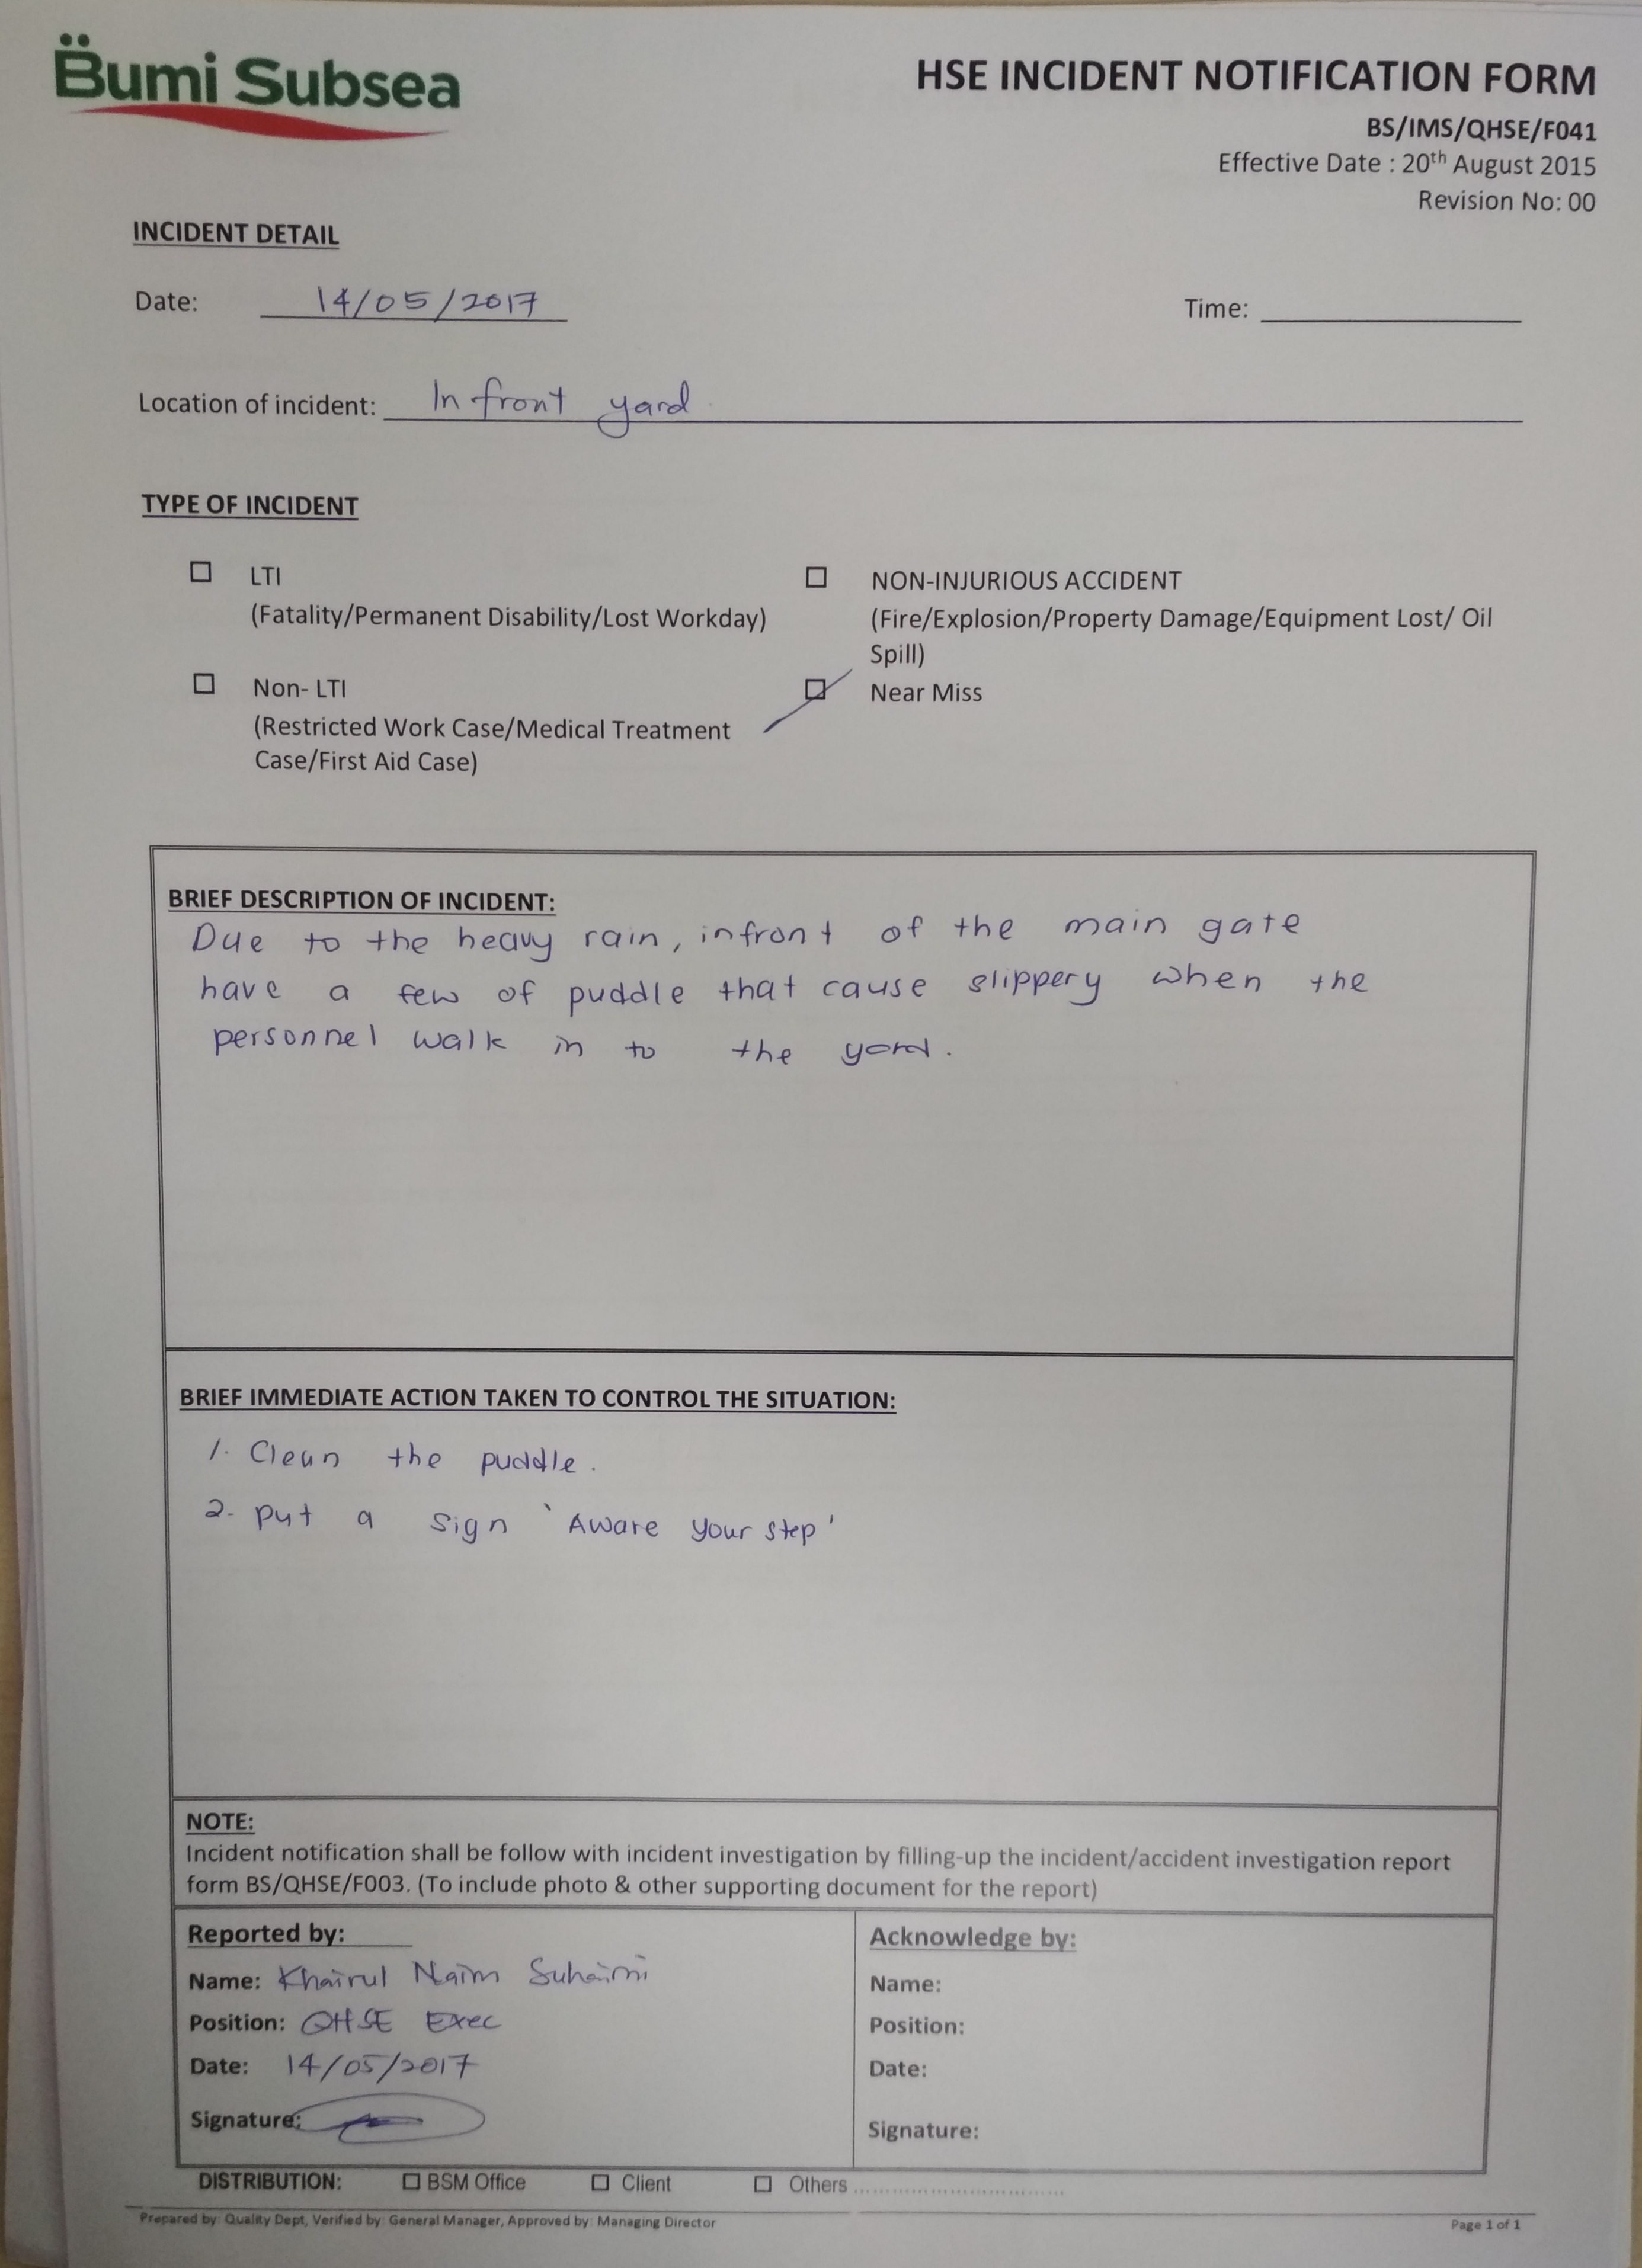 Bumi Subsea
HSE INCIDENT NOTIFICATION FORM
BS/IMS/QHSE/F041
Effective Date : 20th August 2015
Revision No: 00
INCIDENT DETAIL
Date: 14/05/2017 Time:
Location of incident: In front yard
TYPE OF INCIDENT
LTI
(Fatality/Permanent Disability/Lost Workday)
NON-INJURIOUS ACCIDENT
(Fire/Explosion/Property Damage/Equipment Lost/ Oil
Spill)
Non- LTI
(Restricted Work Case/Medical Treatment
Case/First Aid Case)
Near Miss
BRIEF DESCRIPTION OF INCIDENT:
Due to the heavy rain, infront of the main gate
have a few of puddle that cause slippery when the
personnel walk in to the yard.
BRIEF IMMEDIATE ACTION TAKEN TO CONTROL THE SITUATION:
1. Clean the puddle.
2. put a sign 'Aware your step'
NOTE:
Incident notification shall be follow with incident investigation by filling-up the incident/accident investigation report
form BS/QHSE/F003. (To include photo & other supporting document for the report)
Reported by:
Name: Khairul Naim Suhaimi
Position: QHSE Exec
Date: 14/05/2017
Signature:
Acknowledge by:
Name:
Position:
Date:
Signature:
DISTRIBUTION: BSM Office Client Others ........................................
Prepared by: Quality Dept, Verified by: General Manager, Approved by: Managing Director Page 1 of 1